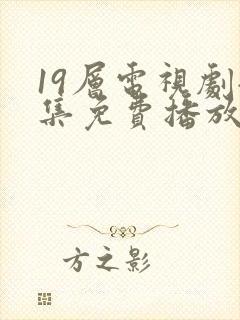 19層電視劇
集免費播放
方之影